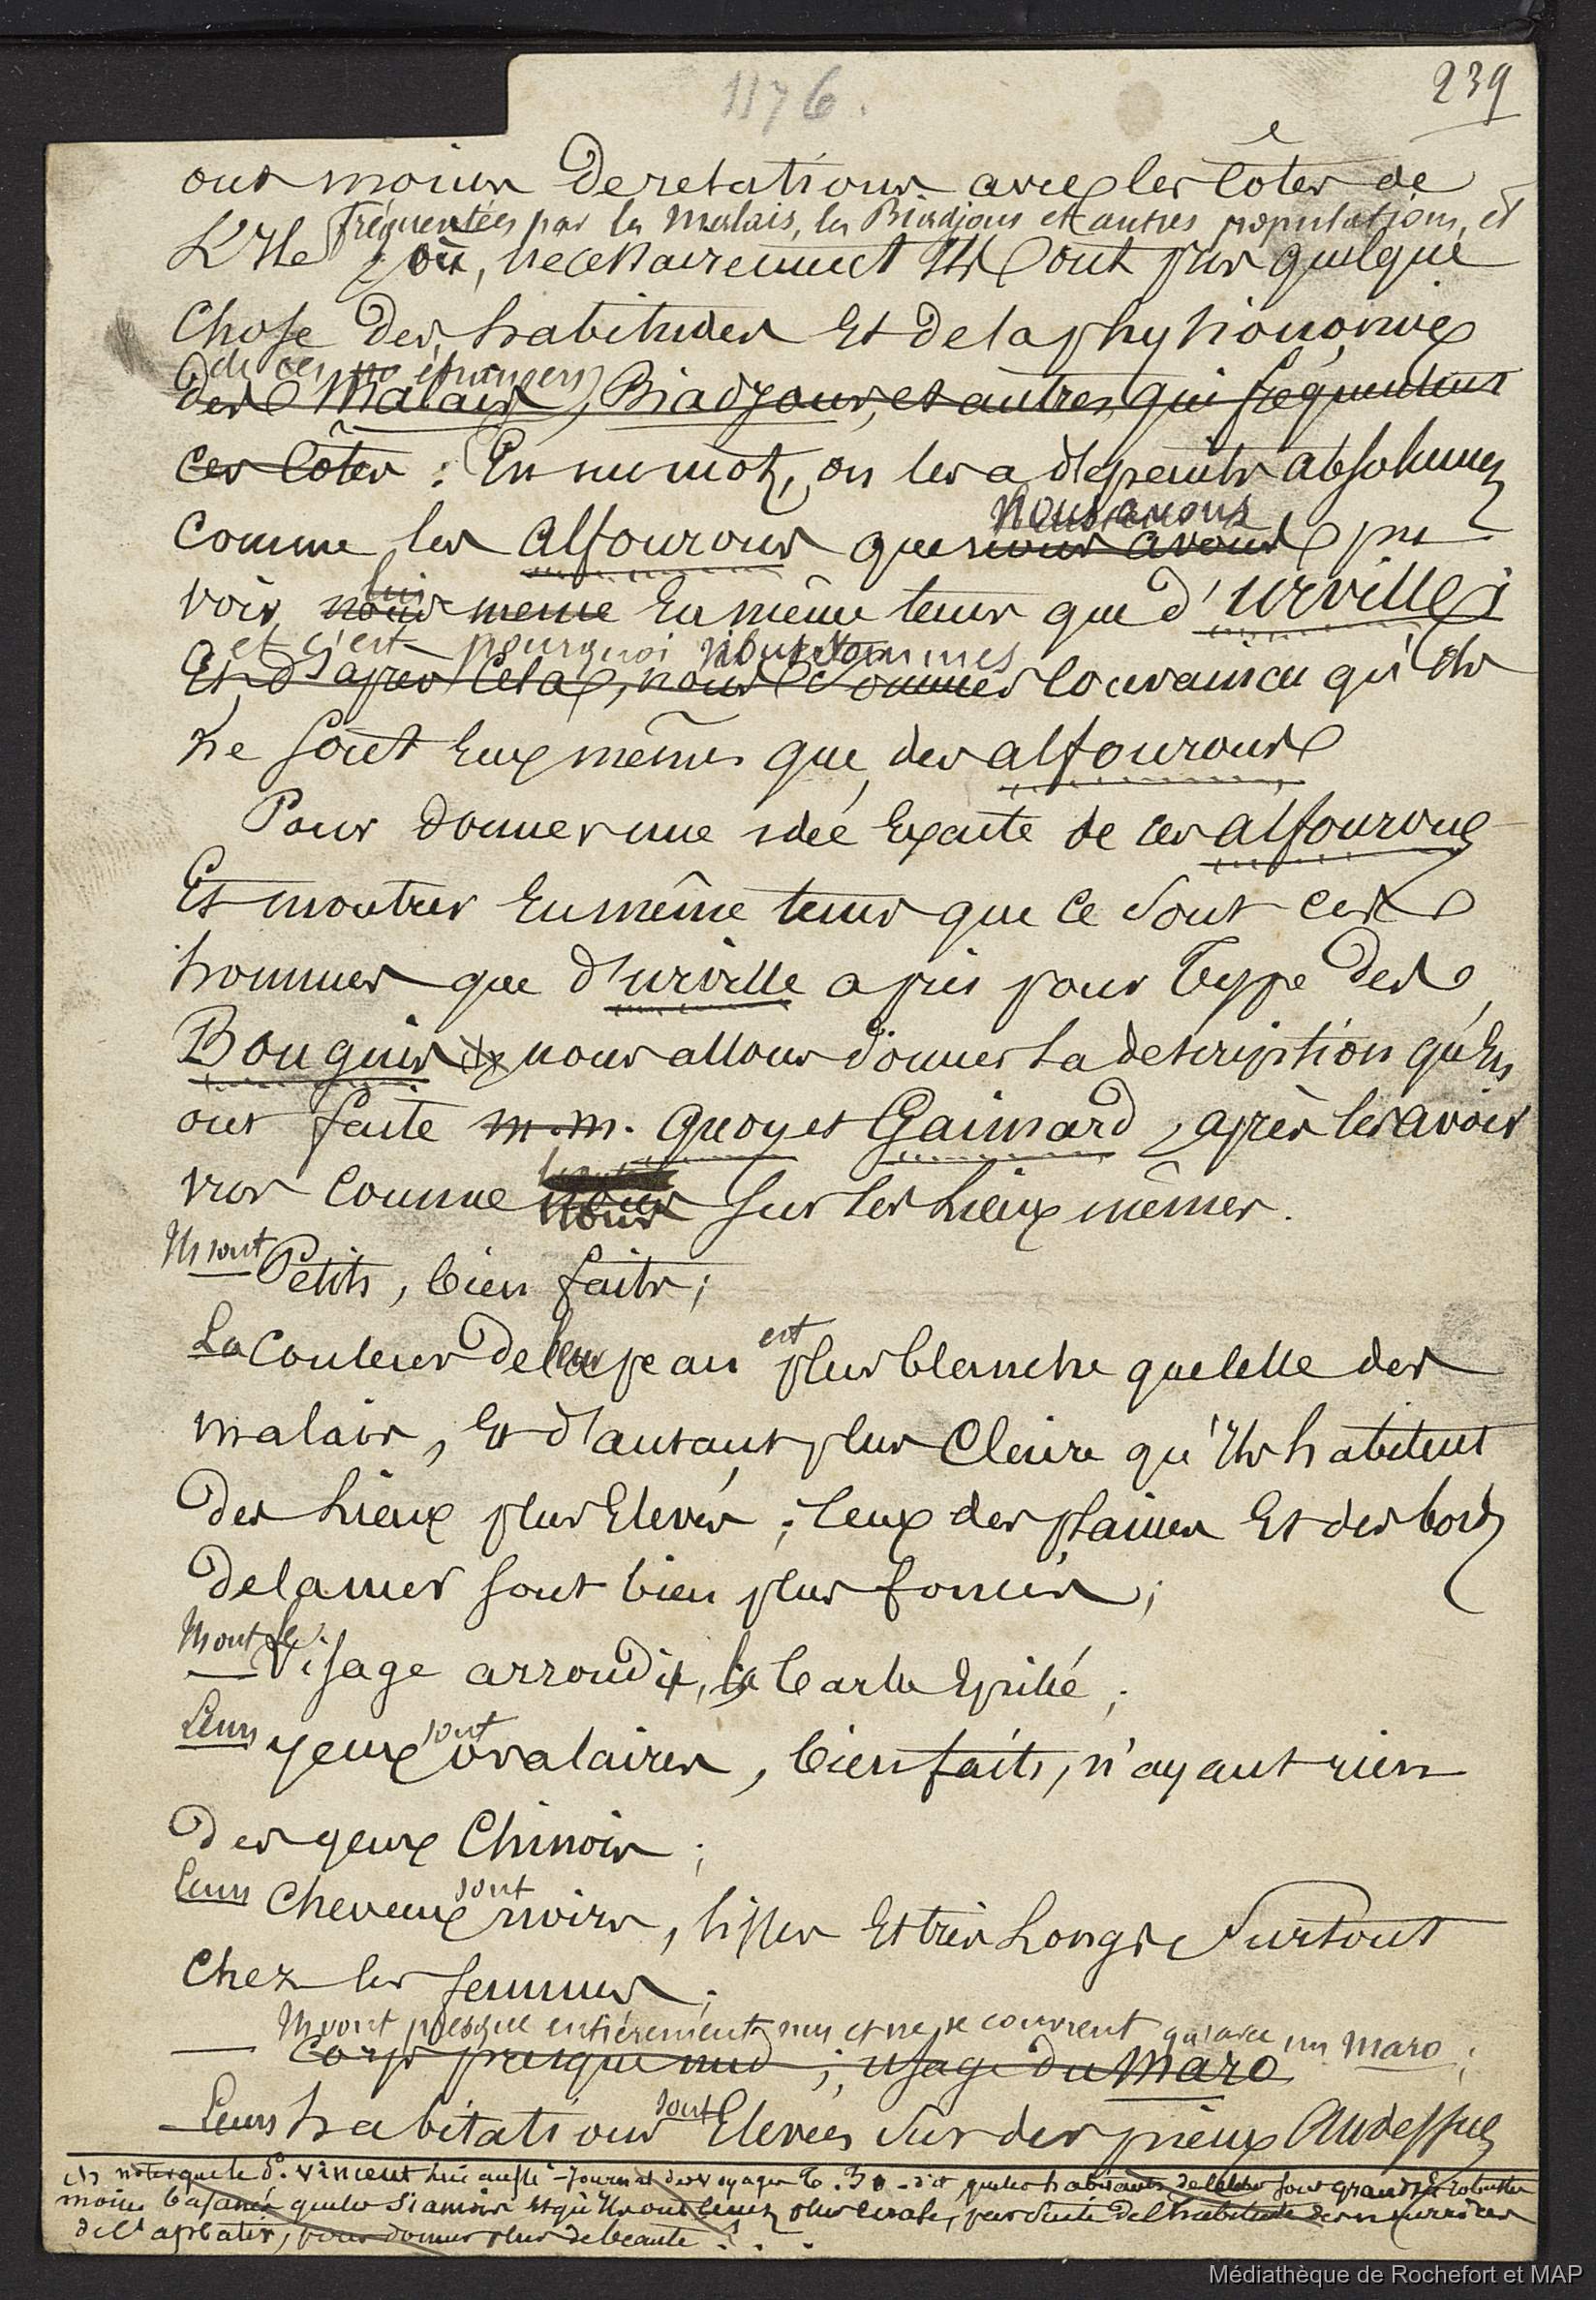 1176.
239
ont moins de relations avec les côtes de
fréquentées par les Malais, les Biadjous et autres populations, et
L'Ile ; où, necessairement Ils ont pris quelque
Chose des habitudes Et de la physionomie
de ces étrangers
des Malais, Biadjous, et autres, qui frequentent
ces Côtes : En un mot, on les a dépeints absolument
nous avons
Comme les alfourous que nous avons pu
lui
voir nous meme En même tems que d'Urville ;
et c'est pourquoi nous sommes
Et d'après Cela, nous Sommes Convaincu qu'Ils
ne sont Eux mêmes que des alfourous
Pour donner une idée Exacte de ces alfourous
Et montrer En même tems que Ce Sont ces
hommes que d'urville a pris pour Type des
Bouguis nous allons donner La description qu'En
ont faite m.m. Quoy et Gaimard, après les avoir
vus Comme nous Sur les Lieux mêmes.
Ils sont Petits, bien faits ;
La Couleur de leur peau est plus blanche que celle des
malais, Et d'autant plus Claire qu'Ils habitent
Des Lieux plus Elevés ; Ceux des plaines Et des bords
De la mer Sont bien plus foncés ;
Ils ont le Visage arrondi, la barbe Epilée ;
Leurs yeux sont ovalaires, bien faits, n'ayant rien
Des yeux Chinois ;
Leurs Cheveux sont noirs, lisses Et très Longs Surtout
Chez les femmes ;
Ils vont presque entièrement nus et ne se couvrent qu'avec un maro ;
Corps presque nud ; usage du maro
Leurs habitations sont Elevées Sur des pieux Audessus
noter que le P. Vincent - Journal des Voyages T. 30 - dit que les habitants de Celebes Sont grands Et robustes
moins basanés que les Siamois Et qu'Ils ont le nez plus Ecrasé, par Suite de l'habitude des nourrices
de l'applatir, pour donner plus de beauté . . .
Médiathèque de Rochefort et MAP